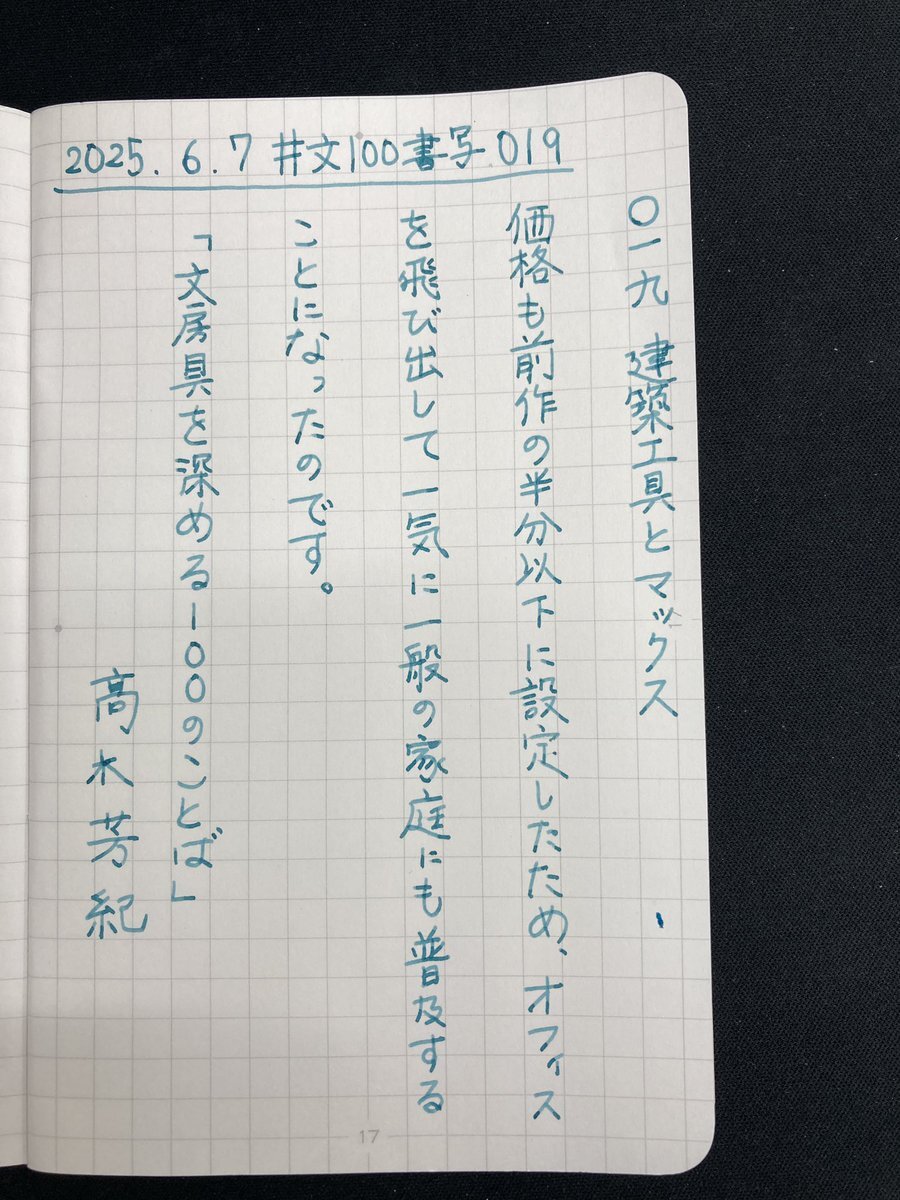 2025.6.7 #文100書写 019
〇一九 建築工具とマックス
価格も前作の半分以下に設定したため、オフィス
を飛び出して一気に一般の家庭にも普及する
ことになったのです。
「文房具を深める100のことば」
高木芳紀
17